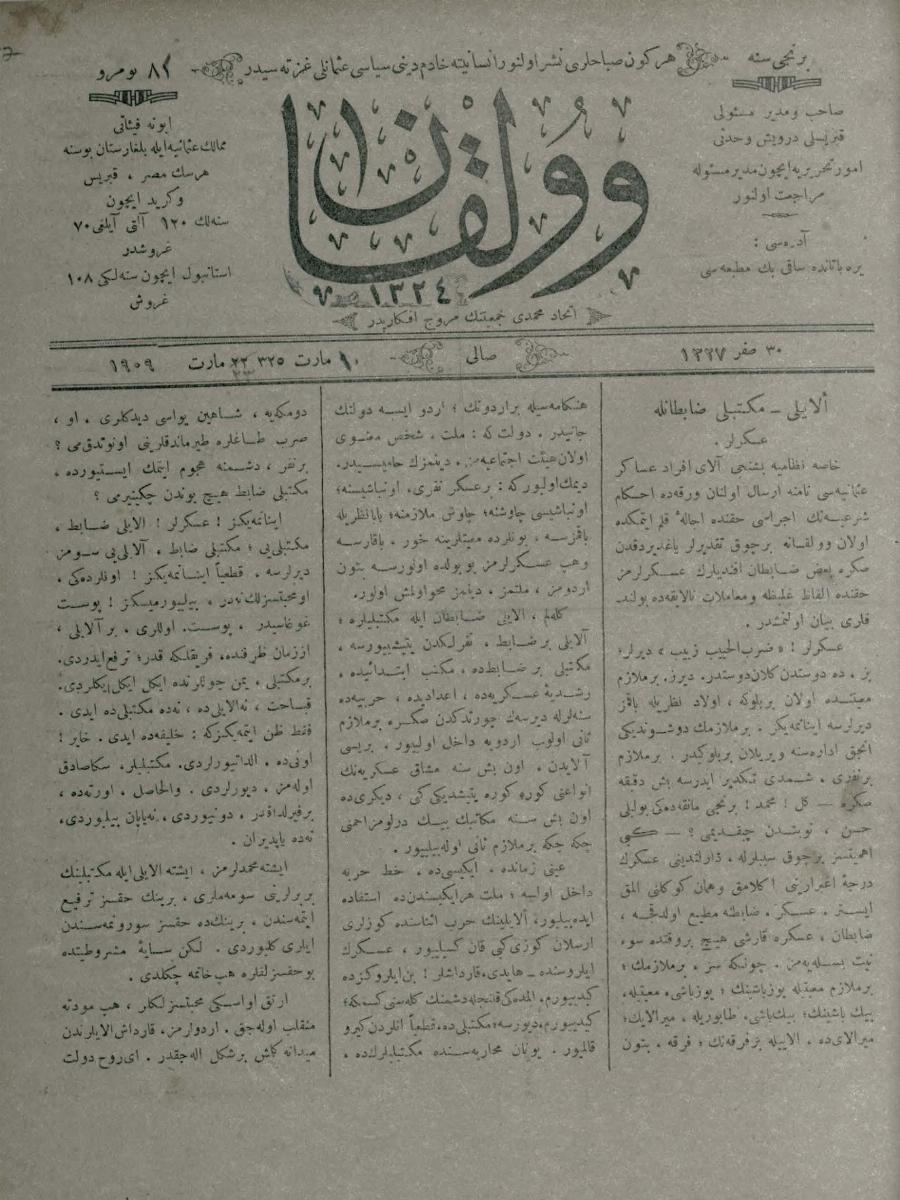 برنجی سنه
هر كون صباحلری نشر اولنور انسانیته خادم دینی سیاسی عثمانلی غزته سیدر
نومرو ٨٢
صاحب و مدیر مسئولی
قبریسلی درویش وحدتی
امور تحریریه ایچون مدیر مسئوله
مراجعت اولنور
آدره‌سی :
یره‌باتانده ساقی بك مطبعه‌سی
وولقان
١٣٢٤
اتحاد محمدی جمعیتنك مروج افكاریدر
ابونه فیئاتی
ممالك عثمانیه ایله بلغارستان بوسنه
هرسك مصر ، قبریس
وكرید ایچون
سنه‌لك ١٢٠ آلتی آیلغی ٧٠
غروشدر
استانبول ایچون سنه‌لكی ١٠٨
غروش
٣٠ صفر ١٣٢٧
صالی
١٠ مارت ٣٢٥ ٢٣ مارت ١٩٠٩
آلایلی – مكتبلی ضابطانله
عسكرلر .
خاصه نظامیه بشنجی آلای افراد عساكر
عثمانیه‌سی نامنه ارسال اولنان ورقه‌ده احكام
شرعیه‌نك اجراسی حقنده اجاله قلم ایتمكده
اولان وولقانه برچوق تقدیرلر یاغدیردقدن
صكره بعض ضابطان افندیلرك عسكرلرمز
حقنده الفاظ غلیظه و معاملات نالایقه‌ده بولند-
قلری بیان اولنمشدر .
عسكرلر ! « ضرب الحبیب زبیب » دیرلر؛
بز ، ده دوستدن كلان دوستدر . دیرز. بر ملازم
معیتنده اولان بربلوكه ، اولاد نظریله باقمز
دیرلرسه اینانمه‌یكز . بر ملازمك دوشوندیكی
انجق اداره‌سنه ویریلان بربلوكیدر . بر ملازم
برنفری ، شمدی تكدیر ایدرسه بش دقیقه
صكره — كل ! محمد ! برنجی مانقه‌ده‌كی بولیلی
حسن ، نوبتدن چیقدیمی ؟ — كبی
اهمیتسز برچوق سببلرله ، دارلدیغی عسكرك
درجهٔ اغبرارینی اكلامق وهمان كوكلنی المق
ایستر . عسكر ، ضابطنه مطیع اولدقجه ،
ضابطان ، عسكره قارشی هیچ بروقتده سوء
نیت بسله‌یه‌مز . چونكه سز ، بر ملازمك؛
بر ملازم معیتله یوزباشینك ؛ یوزباشی، معیتله،
بیك باشینك؛ بیك‌باشی، طابوریله ، میرالایك؛
میرالای ده ، الاییله برفرقه‌نك ؛ فرقه ، بتون
هنكامه‌سیله براردونك ؛ اردو ایسه دولتك
جانیدر . دولت كه : ملت ، شخص معنوی
اولان هیئت اجتماعیه‌مز، دینمزك حامیسیدر.
دیمك اولیوركه : برعسكر نفری، اونباشیسنه؛
اونباشیسی چاوشنه؛ چاوش ملازمنه؛ بابانظریله
باقمزسه ، بونلرده معیتلرینه خور ، باقارسه
وهب عسكرلرمز بویولده اولورسه بتون
اردومز ، ملتمز ، دینمز محو اولمش اولور.
كله‌لم ، الایلی ضابطان ایله مكتبلیلره ؛
آلایلی بر ضابط ، نفرلكدن یتیشیورسه ،
مكتبلی بر ضابطده ، مكتب ابتدائیده ،
رشدیهٔ عسكریه‌ده ، اعدادیده ، حربیه‌ده
سنه‌لرله دیرسك چورتدكدن صكره بر ملازم
ثانی اولوب اردویه داخل اولیور . بریسی
آلایدن ، اون بش سنه مشاق عسكریه‌نك
انواعنی كوره كوره یتیشدیكی كبی ، دیكری‌ده
اون بش سنه مكاتبك بیك درلو مزاحمنی
چكه چكه بر ملازم ثانی اوله‌بیلیور .
عینی زمانده ، ایكیسی‌ده ، خط حربه
داخل اولسه ؛ ملت هر ایكیسندن‌ده استفاده
ایده‌بیلیور، آلایلینك حرب اثناسنده كوزلری
ارسلان كوزی كبی قان كسیلیور ، عسكرك
ایلروسنده – هایدی، قارداشلر ! بن ایلروكزده
كیدییورم. المده‌كی قلنجله دشمنك كله‌سی كسمكه؛
كیدییورم، دیورسه ؛ مكتبلی‌ده، قطعیاً انلردن كیرو
قالمیور . یونان محاربه‌سنده مكتبلیلرك‌ده ،
دومكه‌یه ، شاهین یواسی دیدكلری ، او ،
صرب طاغلره طیرماندقلرینی اونوتدق‌می ؟
برنفر ، دشمنه هجوم ایتمك ایستیورده ،
مكتبلی ضابط هیچ بوندن چكینیرمی ؟
اینانمه‌یكز ! عسكرلر ! الایلی ضابط ،
مكتبلی‌یی ؛ مكتبلی ضابط ، آلایلی‌یی سومز
دیرلرسه . قطعیاً اینانمه‌یكز ! اونلرده‌كی ،
اومحبتسزلك نه‌در ، بیلیورمیسكز ! پوست
غوغاسیدر ، پوست. اوللری ، بر آلایلی ،
اززمان ظرفنده، فریقلكه قدر ؛ ترفع ایدردی.
برمكتبلی ، یمن چوللرنده ایكل ایكل ایكلردی.
قباحت ، نه آلایلی‌ده ، نه‌ده مكتبلی‌ده ایدی .
فقط ظن ایتمه‌یكزكه : خلیفه‌ده ایدی . خایر !
اونی‌ده ، الداتیورلردی. مكتبلیلر، سكا صادق
اوله‌مز ، دیورلردی . والحاصل ، اورته‌ده ،
برفیرلداقدر ، دونیوردی ، نه‌یاپان بیلیوردی،
نه‌ده یاپدیران .
ایشته محمدلرمز ، ایشته الایلی ایله مكتبلینك
بربرلرینی سومه‌ملری ، برینك حقسز ترفیع
ایتمه‌سندن ، برینك‌ده حقسز سورونمه‌سندن
ایلری كلیوردی . لكن سایهٔ مشروطیتده
بوحقسزلقلره هپ خاتمه چكلدی .
ارتق اواسكی محبتسزلكلر ، هپ مودته
منقلب اوله‌جق . اردولرمز، قارداش آلایلرندن
میدانه كلمش برشكل اله‌جقدر . ای روح دولت